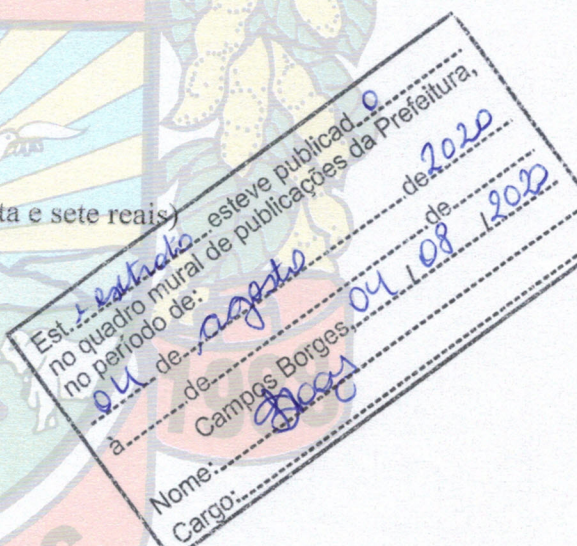 ta e sete reais)
Est. e extrato esteve publicad o
no quadro mural de publicações da Prefeitura,
no período de:
04 de agosto de 2020
a de de
Campos Borges, 04 / 08 / 2020
Nome:
Cargo: